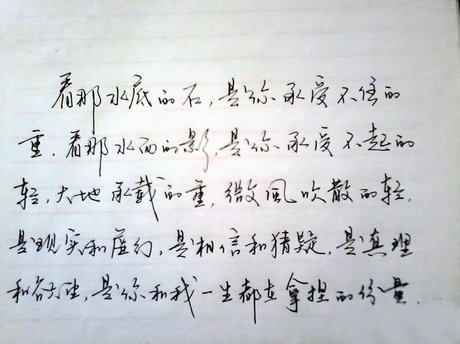 看那水底的石，是你承受不住的
重．看那水面的影，是你承受不起的
轻，大地承载的重，微風吹散的轻．
是现实和虚幻，是相信和猜疑，是真理
和谷欠望，是你和我一生都在拿捏的份量．